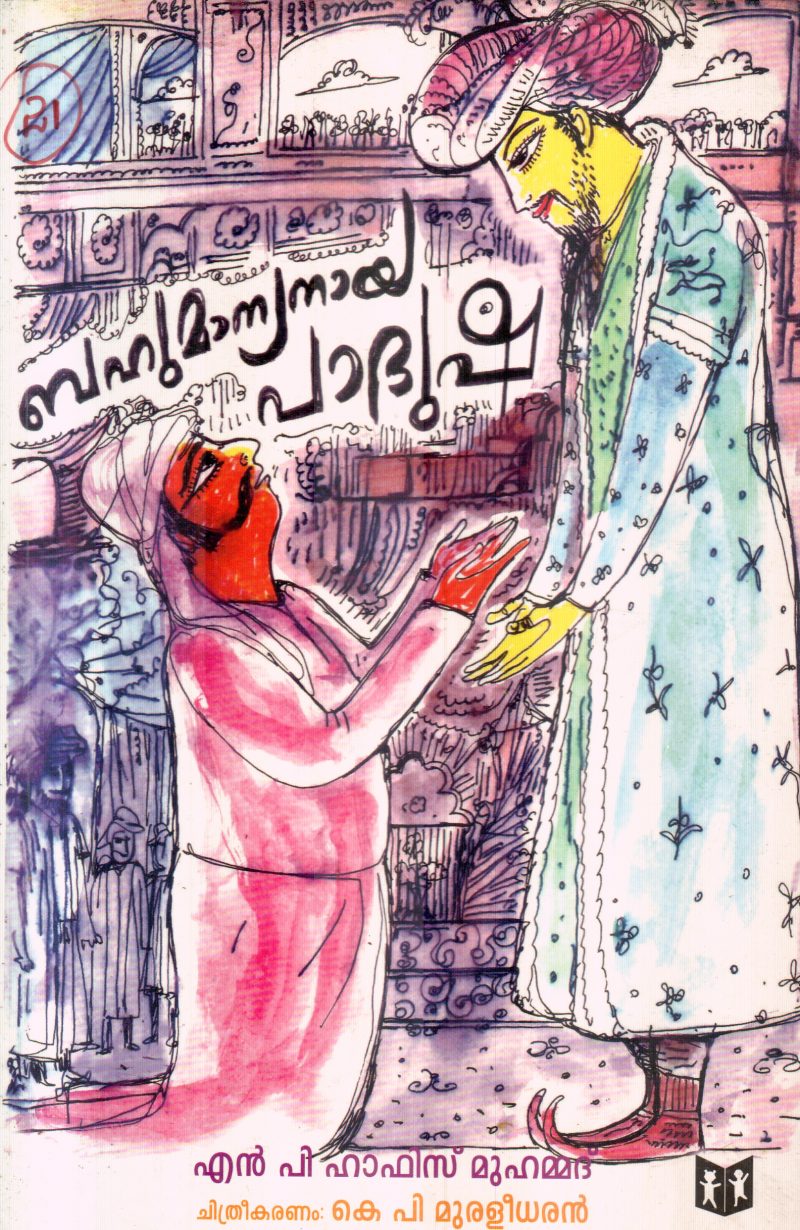 21
ബഹുമാന്യനായ
പാദുഷ
എൻ പി ഹാഫിസ് മുഹമ്മദ്
ചിത്രീകരണം: കെ പി മുരളീധരൻ